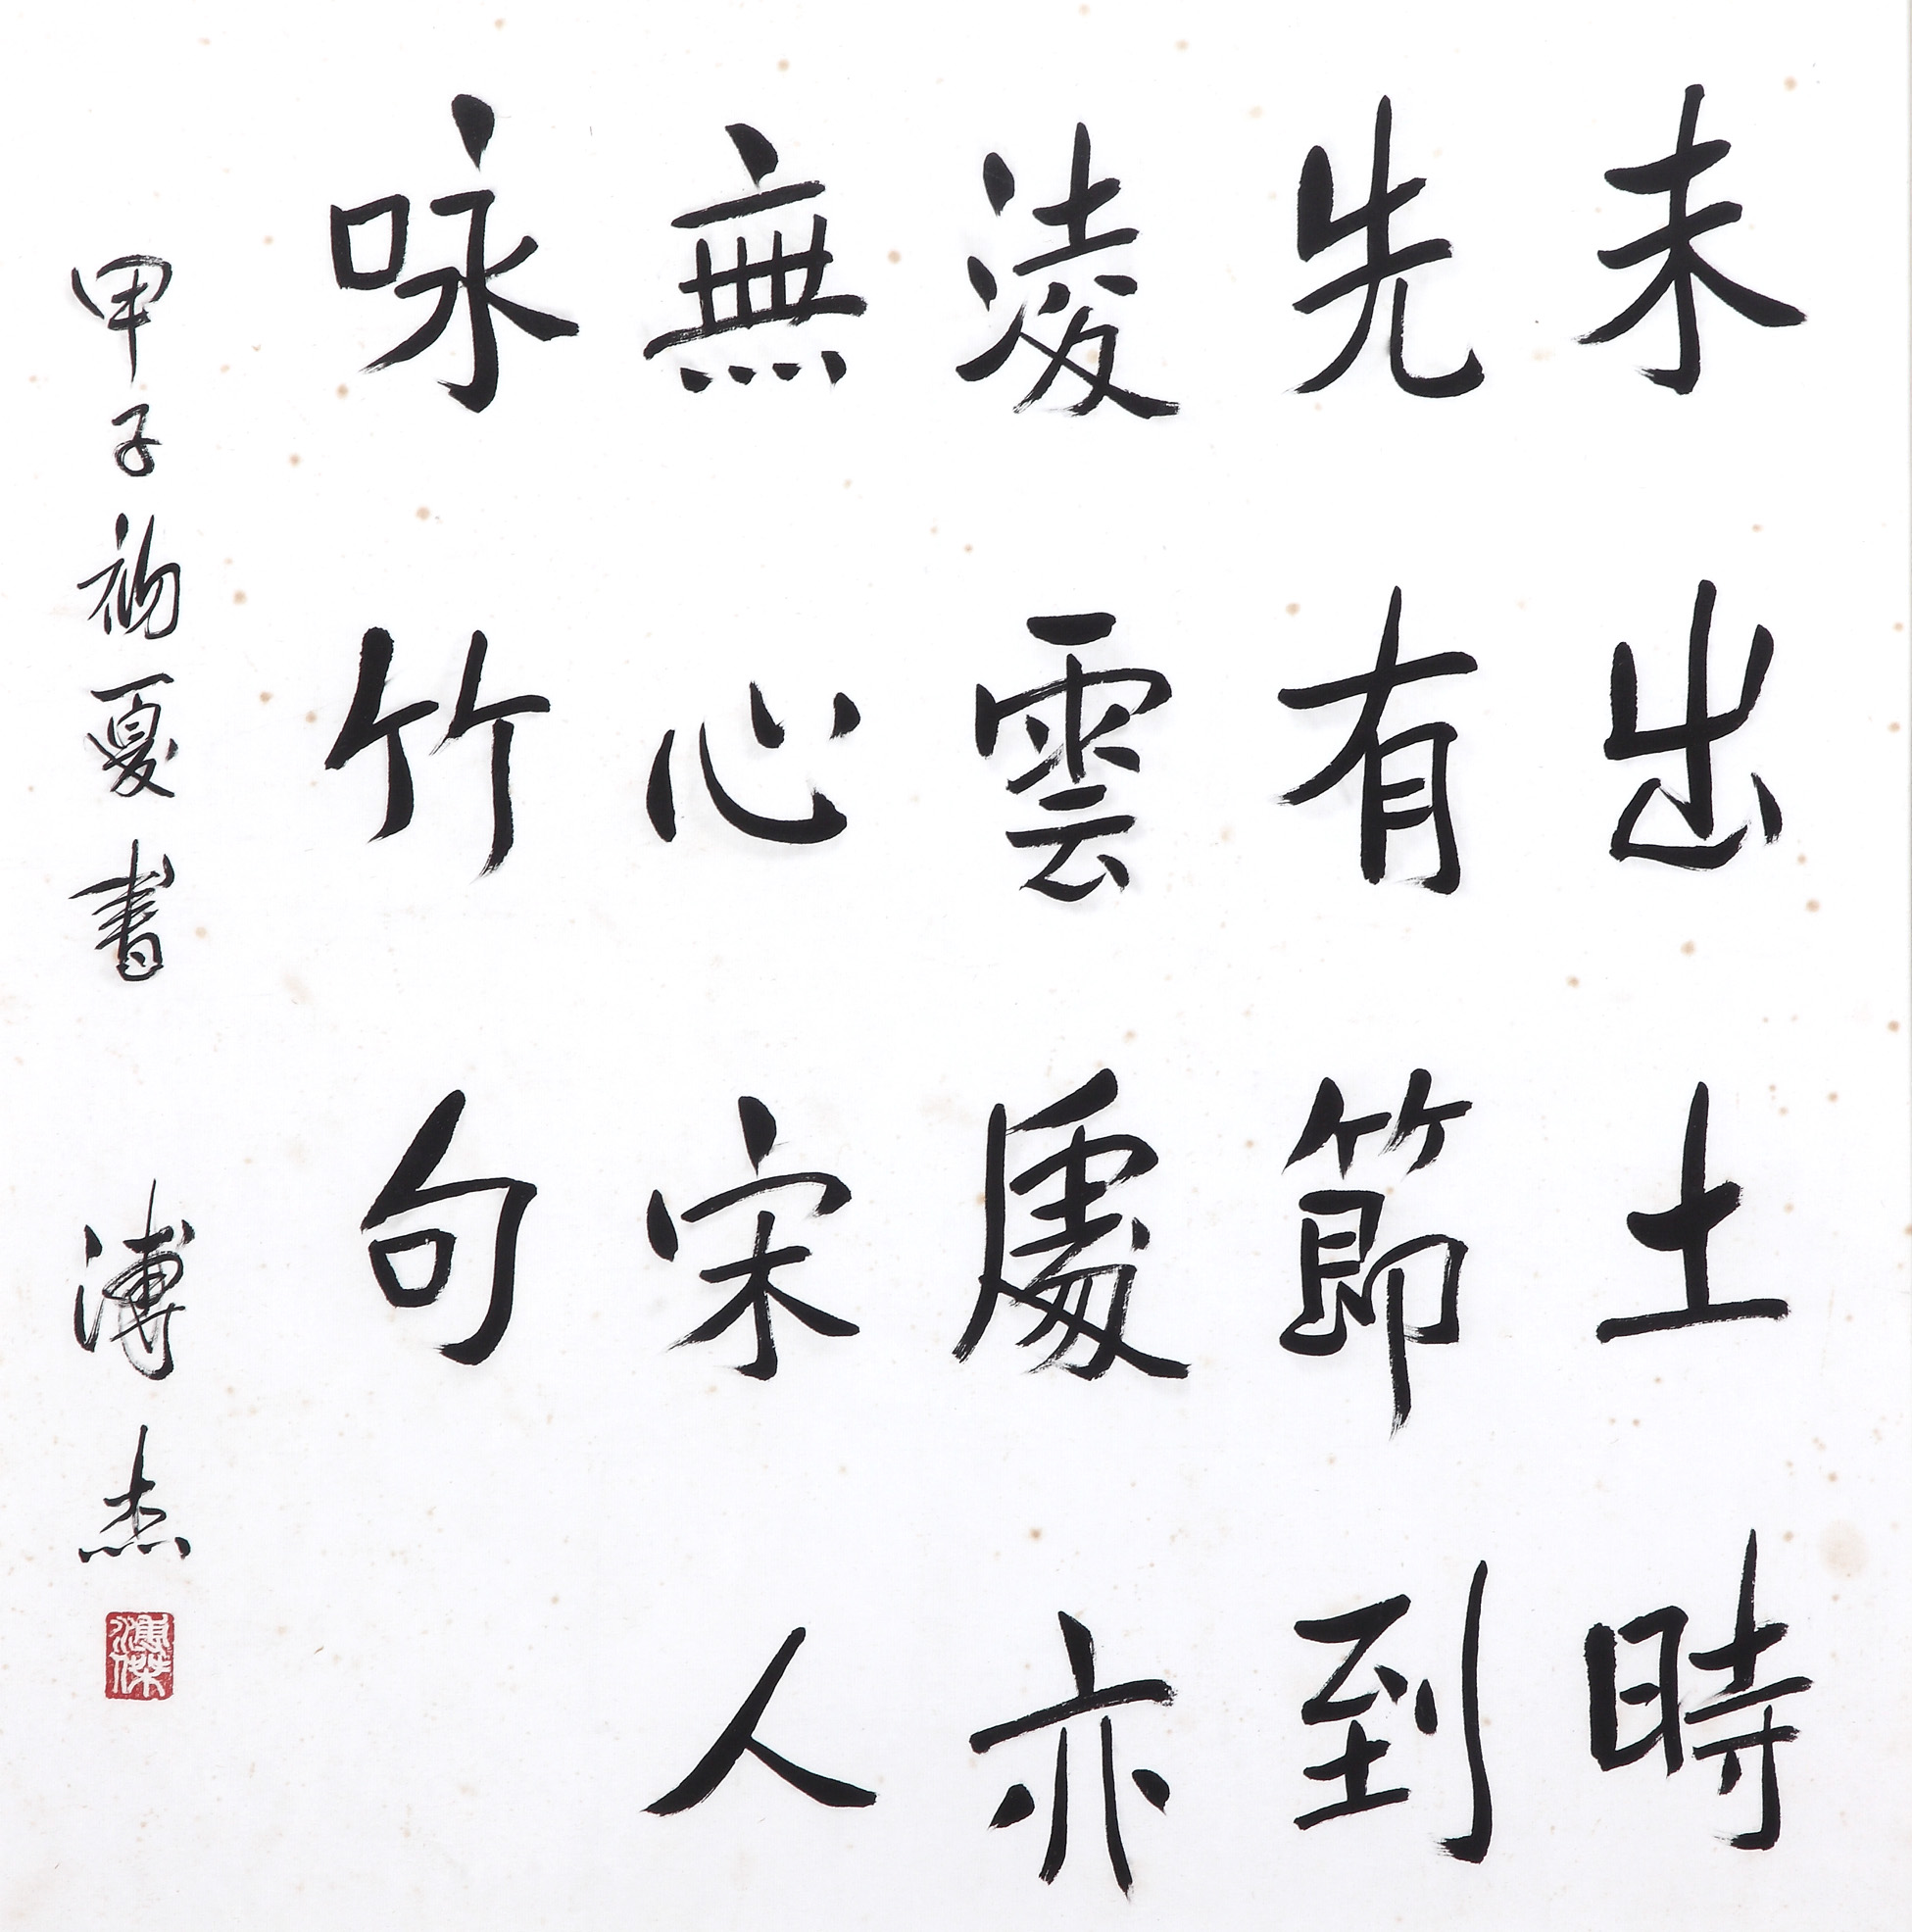 未出土時
先有節到
淩雲處亦
無心宋人
咏竹句
甲子初夏書 溥杰
溥傑